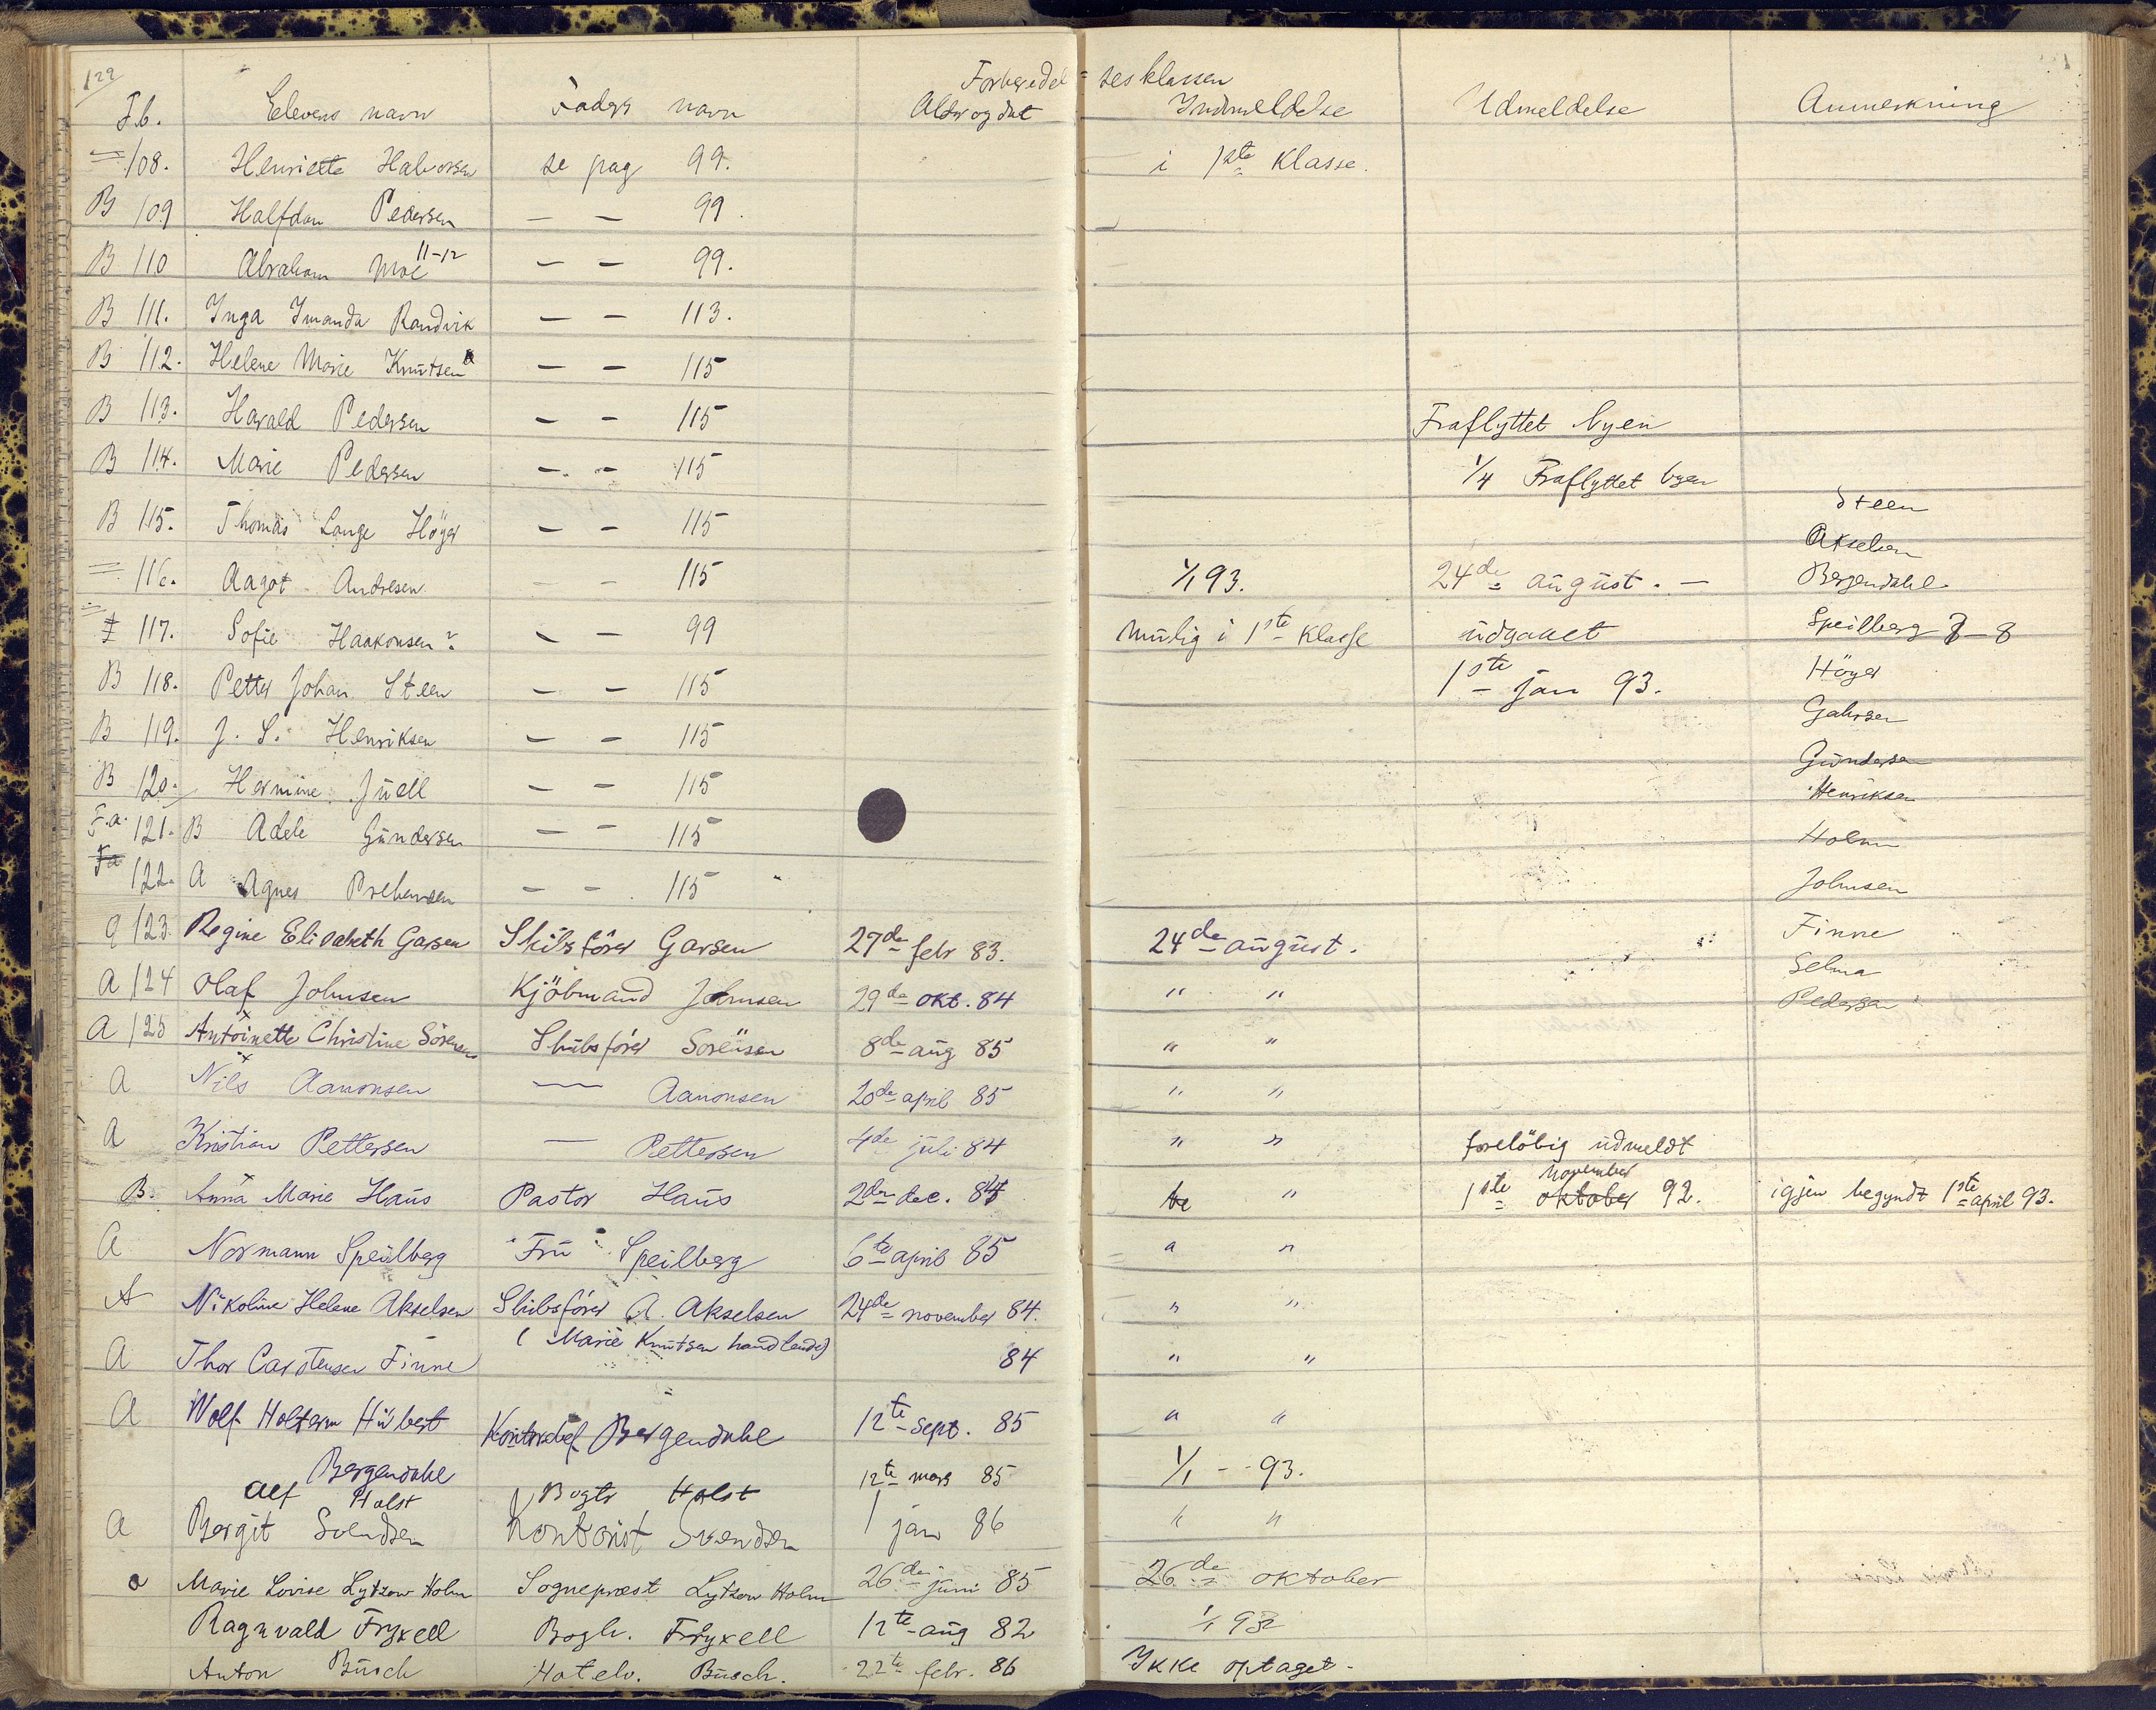 129
Forberedelsesklassen
F.b. Elevens navn Faders navn Alder og dat Indmeldelse Udmeldelse Anmerkning
108. Henriette Halvorsen se pag 99. i 1ste Klasse.
B 109 Halfdan Pedersen — — 99.
B 110 Abraham Moe 11-12 — — 99.
B 111. Inga Imanda Randvik — — 113.
B 112. Helene Marie Knutsen — — 115
B 113. Harald Pedersen — — 115 Fraflyttet byen
B 114. Marie Pedersen — — 115 1/4 Fraflyttet byen
Steen
B 115. Thomas Lange Höyer — — 115
Akselsen
116. Aagot Andresen — — 115 1/1 93. 24de august. — Bergendahl
117. Sofie Haakonsen? — — 99 mulig i 1ste Klasse udgaaet Speilberg 7-8
B 118. Petter Johan Steen — — 115 1ste jan 93. Höyer
B 119. J. S. Henriksen — — 115 Gahrsen
Gundersen
B 120. Hermine Juell — — 115 Henriksen
F.a. 121. B Adele Gundersen — — 115 Holm
Fa 122. A Agnes Prebensen — — 115 Johnsen
123. Regine Elisabeth Garsen Skibsförer Garsen 27de febr 83. 24de august. Finne
Selma
A 124 Olaf Johnsen Kjöbmand Johnsen 29de okt. 84 " " Pedersen
A 125 Antoinette Christine Sörensen Skibsförer Sörensen 8de aug 85 " "
A Nils Aanonsen — Aanonsen 20de april 85 " "
A Kristian Pettersen — Pettersen 4de juli 84 " " forelöbig udmeldt
november
B. Anna Marie Haus Pastor Haus 2den dec. 84 " 1ste oktober 92. igjen begyndt 1ste april 93.
A Normann Speilberg Fru Speilberg 6te april 85 " "
A Nikoline Helene Akselsen Skibsförer A. Akselsen 24de november 84. " "
(Marie Knutsen handlende)
A Thor Carstensen Finne 84 " "
A Wolf Holterm Hübert Kontorchef Bergendahl 12te sept. 85 " "
Bergendahl
Alf Holst Bogtr Holst 12te mars 85 1/1 - 93.
A Bergit Svendsen Kontorist Svendsen 1 jan 86 " "
a Marie Lovise Lytzow Holm Sogneprest Lytzow Holm 26de juni 85 26de oktober
Ragnvald Fryxell Bogh. Fryxell 12te aug 82 1/1 93
Anton Busch Hotelv. Busch. 22te febr. 86 Ikke optaget.